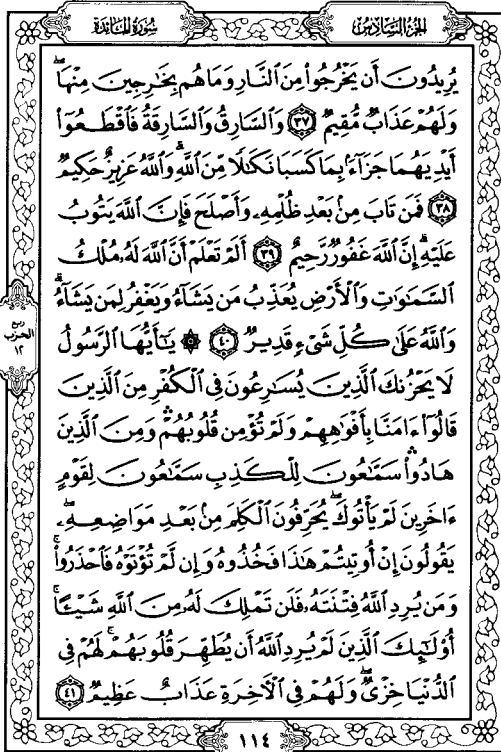 سُورَةُ المَائِدَةِ
الجُزءُ السَّادِسُ
يُرِيدُونَ أَن يَخْرُجُوا۟ مِنَ ٱلنَّارِ وَمَا هُم بِخَـٰرِجِينَ مِنْهَا ۖ
وَلَهُمْ عَذَابٌ مُّقِيمٌ ٣٧ وَٱلسَّارِقُ وَٱلسَّارِقَةُ فَٱقْطَعُوٓا۟
أَيْدِيَهُمَا جَزَآءًۢ بِمَا كَسَبَا نَكَـٰلًا مِّنَ ٱللَّهِ ۗ وَٱللَّهُ عَزِيزٌ حَكِيمٌ
٣٨ فَمَن تَابَ مِنۢ بَعْدِ ظُلْمِهِۦ وَأَصْلَحَ فَإِنَّ ٱللَّهَ يَتُوبُ
عَلَيْهِ ۗ إِنَّ ٱللَّهَ غَفُورٌ رَّحِيمٌ ٣٩ أَلَمْ تَعْلَمْ أَنَّ ٱللَّهَ لَهُۥ مُلْكُ
ٱلسَّمَـٰوَٰتِ وَٱلْأَرْضِ يُعَذِّبُ مَن يَشَآءُ وَيَغْفِرُ لِمَن يَشَآءُ ۗ
وَٱللَّهُ عَلَىٰ كُلِّ شَىْءٍ قَدِيرٌ ٤٠ ۞ يَـٰٓأَيُّهَا ٱلرَّسُولُ
لَا يَحْزُنكَ ٱلَّذِينَ يُسَـٰرِعُونَ فِى ٱلْكُفْرِ مِنَ ٱلَّذِينَ
قَالُوٓا۟ ءَامَنَّا بِأَفْوَٰهِهِمْ وَلَمْ تُؤْمِن قُلُوبُهُمْ ۛ وَمِنَ ٱلَّذِينَ
هَادُوا۟ ۛ سَمَّـٰعُونَ لِلْكَذِبِ سَمَّـٰعُونَ لِقَوْمٍ
ءَاخَرِينَ لَمْ يَأْتُوكَ ۖ يُحَرِّفُونَ ٱلْكَلِمَ مِنۢ بَعْدِ مَوَاضِعِهِۦ ۖ
يَقُولُونَ إِنْ أُوتِيتُمْ هَـٰذَا فَخُذُوهُ وَإِن لَّمْ تُؤْتَوْهُ فَٱحْذَرُوا۟ ۚ
وَمَن يُرِدِ ٱللَّهُ فِتْنَتَهُۥ فَلَن تَمْلِكَ لَهُۥ مِنَ ٱللَّهِ شَيْـًٔا ۚ
أُو۟لَـٰٓئِكَ ٱلَّذِينَ لَمْ يُرِدِ ٱللَّهُ أَن يُطَهِّرَ قُلُوبَهُمْ ۚ لَهُمْ فِى
ٱلدُّنْيَا خِزْىٌ ۖ وَلَهُمْ فِى ٱلْـَٔاخِرَةِ عَذَابٌ عَظِيمٌ ٤١
ربع
الحزب
١٢
١١٤